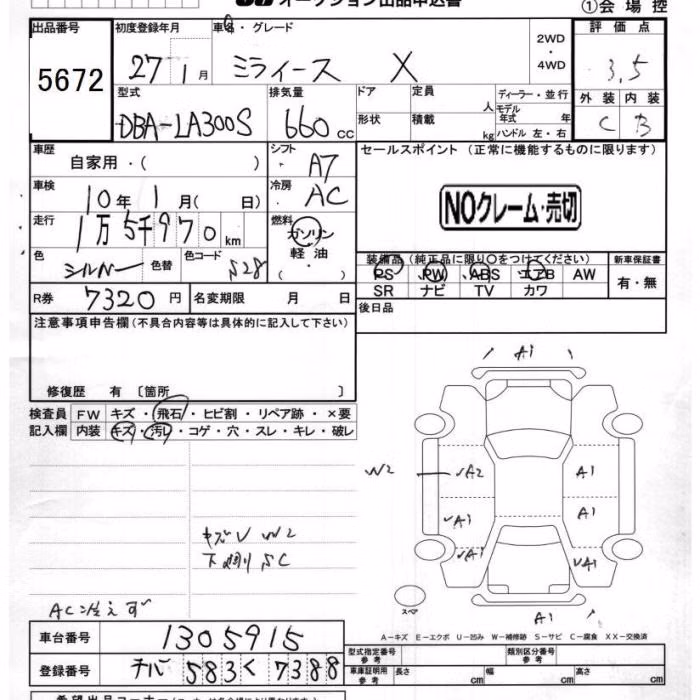 オークション出品申込書 ①会場控
出品番号 初度登録年月 車名・グレード 2WD・4WD 評価点
5672 27 1月 ミライース X 3.5
型式 排気量 ドア 定員 人 ディーラー・並行 外装 内装
DBA-LA300S 660cc 形状 積載 kg モデル年式 年 ハンドル 左・右 C B
車歴 自家用・( ) シフト A7 セールスポイント (正常に機能するものに限ります)
車検 10年 1月( 日) 冷房 AC NOクレーム・売切
走行 1万5千970km 燃料 ガソリン 軽油 ( )
色 シルバー 色替 色コード S28 装備品(純正品に限り○をつけてください) 新車保証書
PS PW ABS エアB AW 有・無
SR ナビ TV カワ
R券 7320円 名変期限 月 日 後日品
注意事項申告欄(不具合内容等は具体的に記入して下さい)
修復歴 有 〔箇所 〕
検査員 FW キズ・飛石・ヒビ割・リペア跡・×要
記入欄 内装 キズ・汚レ・コゲ・穴・スレ・キレ・破レ
A1
W2 A2 A1
A1 A1
A1 A1
キズV W2
下廻り SC
AC冷えず
スペ
A1
A－キズ E－エクボ U－凹み W－補修跡 S－サビ C－腐食 XX－交換済
車台番号 1305915 型式指定番号 参考 類別区分番号 参考
登録番号 チバ 583く7388 車庫証明用 参考 長さ cm 幅 cm 高さ cm
希望出品コーナー